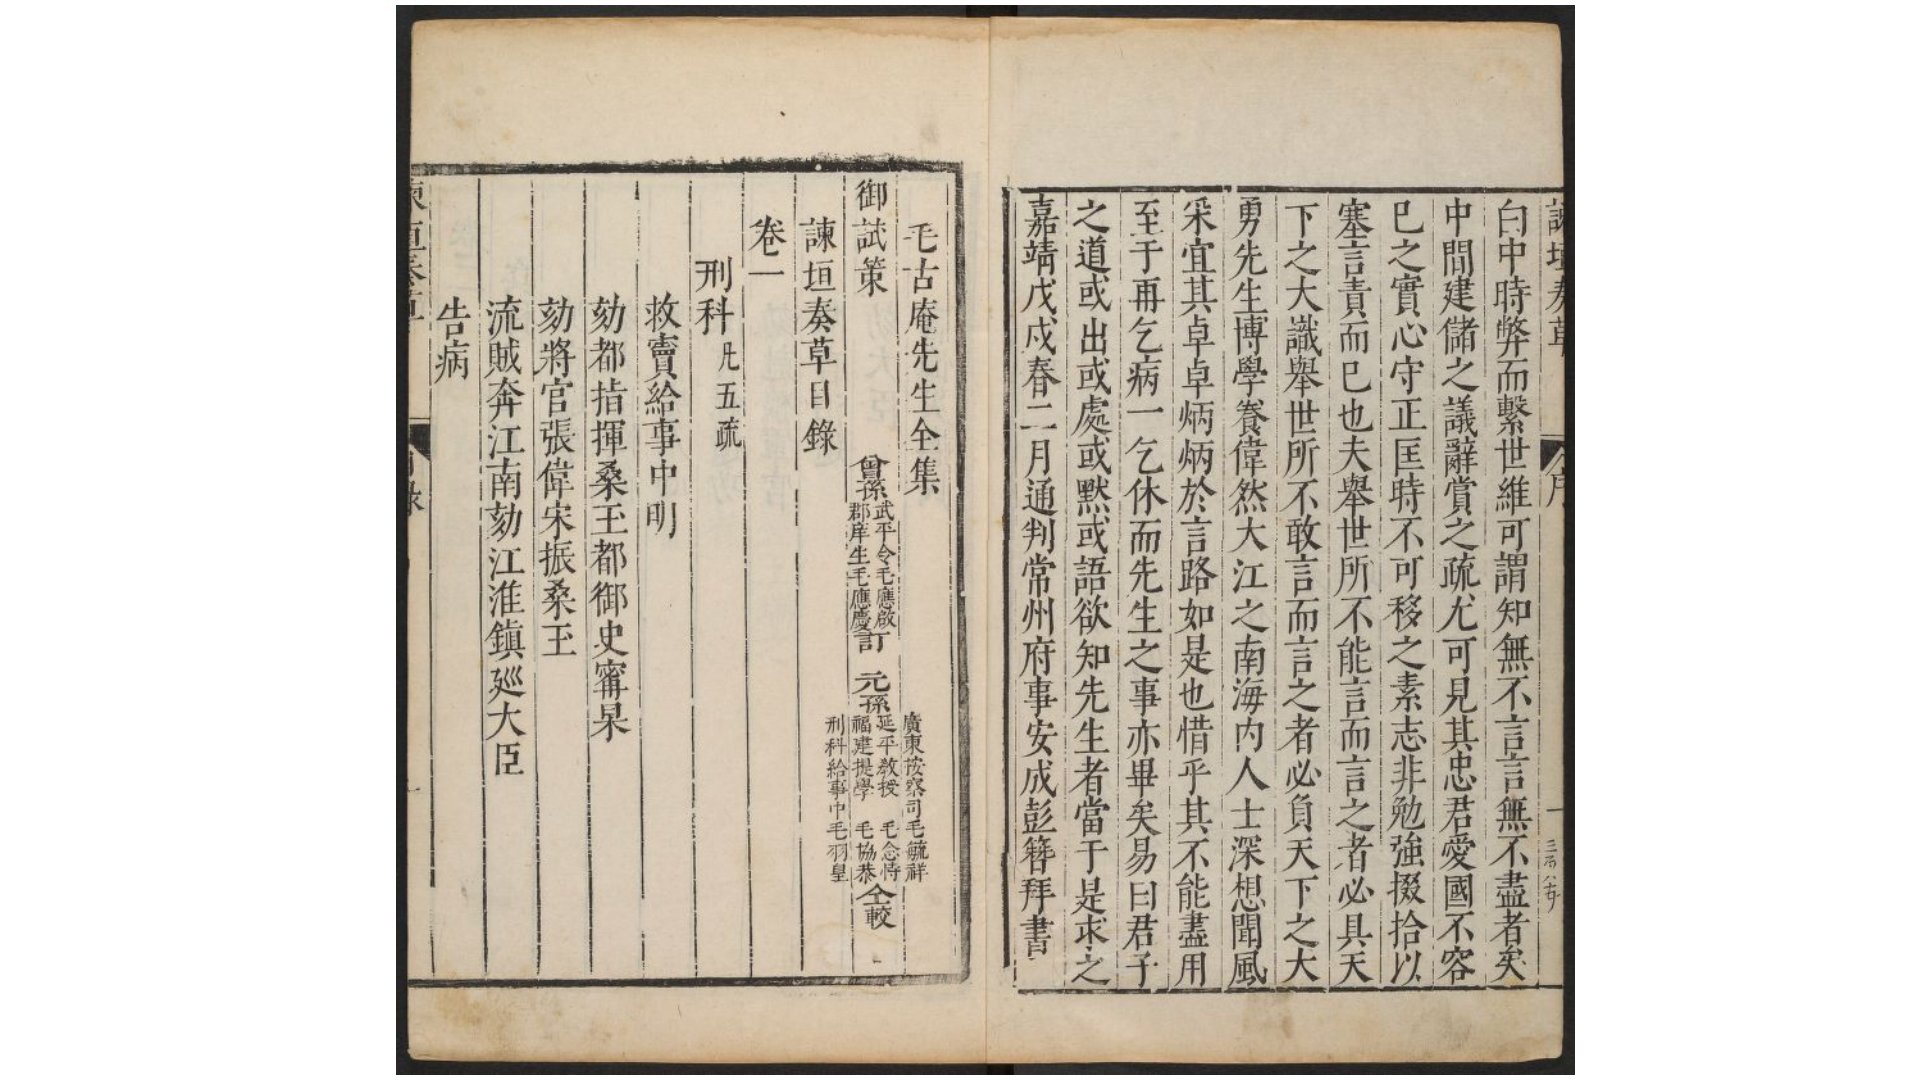 諫垣奏草
序
一
白中時弊而繫世維可謂知無不言言無不盡者矣
中間建儲之議辭賞之疏尤可見其忠君愛國不容
已之實心守正匡時不可移之素志非勉強掇拾以
塞言責而已也夫舉世所不能言而言之者必具天
下之大識舉世所不敢言而言之者必負天下之大
勇先生博學養偉然大江之南海内人士深想聞風
采宜其卓卓炳炳於言路如是也惜乎其不能盡用
至于再乞病一乞休而先生之事亦畢矣易曰君子
之道或出或處或默或語欲知先生者當于是求之
嘉靖戊戌春二月通判常州府事安成彭簪拜書
毛古庵先生全集
御試策
曾孫
武平令毛應啟
郡庠生毛應慶
訂
元孫
廣東按察司毛毓祥
延平教授毛念恃
福建提學毛協恭
刑科給事中毛羽皇
仝較
諫垣奏草目錄
卷一
刑科凡五疏
救竇給事中明
劾都指揮桑玉都御史甯杲
劾將官張偉宋振桑玉
流賊奔江南劾江淮鎮廵大臣
告病
諫垣奏草
目錄
一